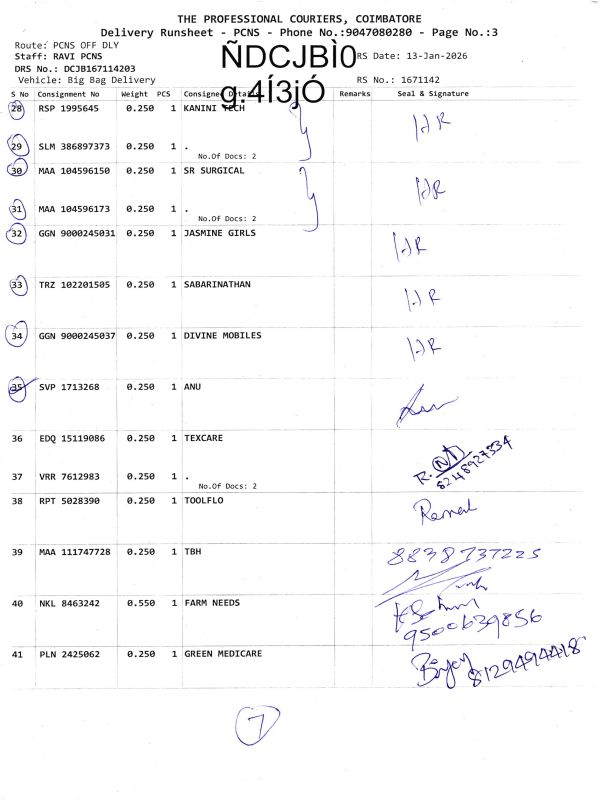 THE PROFESSIONAL COURIERS, COIMBATORE
Delivery Runsheet - PCNS - Phone No.:9047080280 - Page No.:3
Route: PCNS OFF DLY
Staff: RAVI PCNS
ÑDCJBÌ0
RS Date: 13-Jan-2026
DRS No.: DCJB167114203
Vehicle: Big Bag Delivery
g.4Í3jÓ
RS No.: 1671142
S No Consignment No Weight PCS Consignee Details Remarks Seal & Signature
28 RSP 1995645 0.250 1 KANINI TECH
29 SLM 386897373 0.250 1 .
No.Of Docs: 2
30 MAA 104596150 0.250 1 SR SURGICAL
31 MAA 104596173 0.250 1 .
No.Of Docs: 2
32 GGN 9000245031 0.250 1 JASMINE GIRLS
33 TRZ 102201505 0.250 1 SABARINATHAN
34 GGN 9000245037 0.250 1 DIVINE MOBILES
35 SVP 1713268 0.250 1 ANU
36 EDQ 15119086 0.250 1 TEXCARE
8248927334
37 VRR 7612983 0.250 1 .
No.Of Docs: 2
38 RPT 5028390 0.250 1 TOOLFLO
39 MAA 111747728 0.250 1 TBH
8838737225
40 NKL 8463242 0.550 1 FARM NEEDS
9500639856
41 PLN 2425062 0.250 1 GREEN MEDICARE
8129494418
7